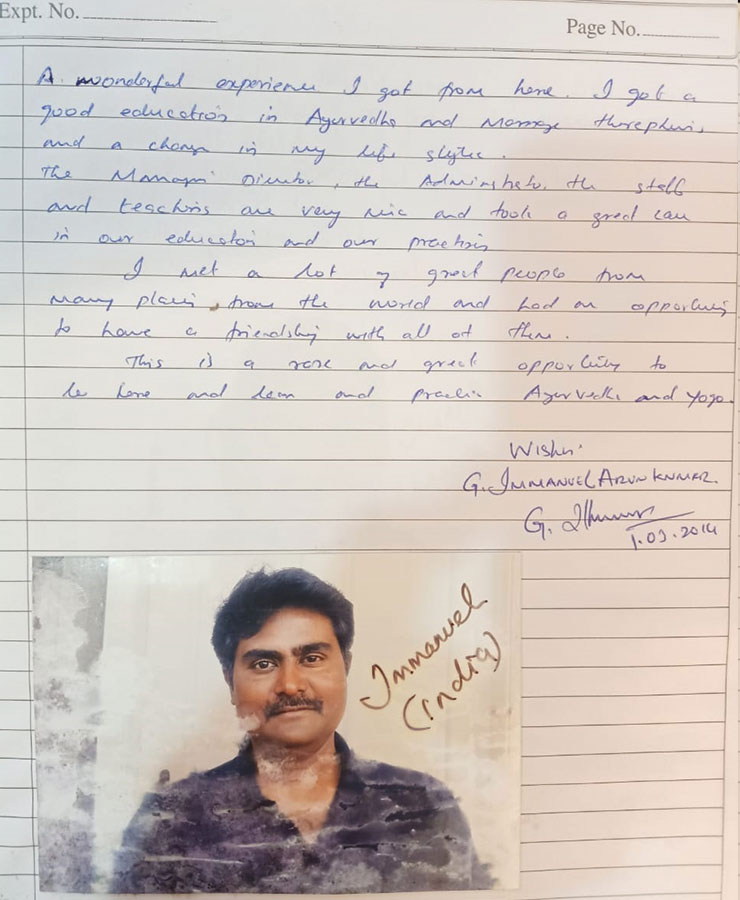 Expt. No.
Page No.
A woonderful experience I got from here. I got a
good education in Ayurvedha and Massage
and a change in my life style.
The Director, the the staff
and are very and took a great care
in our education and our
I met a lot of great people from
many from the world and had an
to have a friendship with all of them.
This is a rare and great to
be here and learn and Ayurvedha and Yoga.
Wishes.
G. IMMANUEL ARUN KUMAR.
G.
1.03.2014
Immanuel
(India)